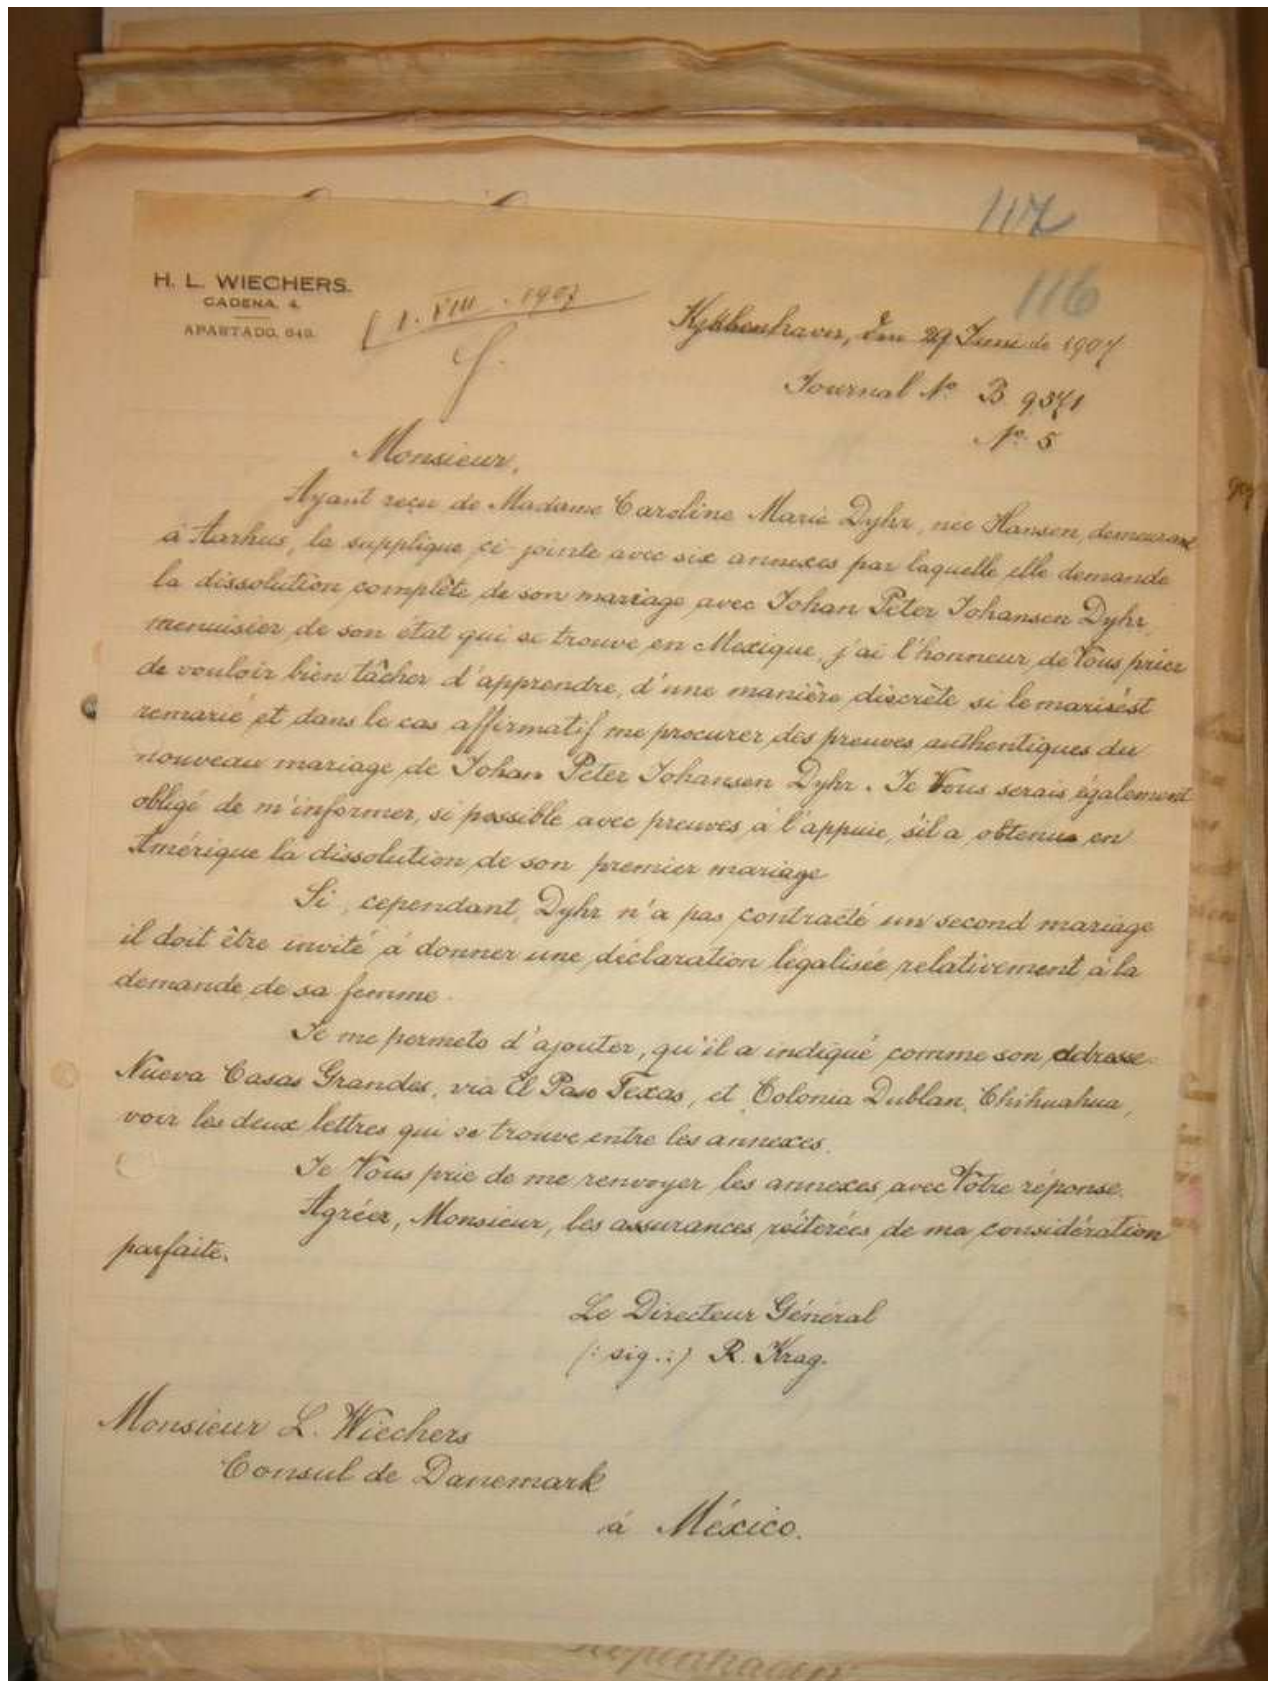 117
H. L. WIECHERS.
CADENA, 4.
APARTADO, 649.
1. VIII. 1907
116
Kjøbenhavn, den 29 Juni de 1907
Journal Nº B. 9571
Nº 5
Monsieur,
Ayant reçu de Madame Caroline Marie Dyhr, née Hansen, demeurant
à Aarhus, la supplique ci-jointe avec six annexes par laquelle elle demande
la dissolution complête de son mariage avec Johan Peter Johansen Dyhr,
menuisier de son état qui se trouve en Mexique, j'ai l'honneur de Vous prier
de vouloir bien tâcher d'apprendre, d'une manière discrète si le mari s'est
remarié et dans le cas affirmatif me procurer des preuves authentiques du
nouveau mariage de Johan Peter Johansen Dyhr. Je Vous serais également
obligé de m'informer, si possible avec preuves à l'appuie, s'il a obtenu en
Amérique la dissolution de son premier mariage
Si, cependant, Dyhr n'a pas contracté un second mariage
il doit être invité à donner une déclaration légalisée relativement à la
demande de sa femme.
Je me permets d'ajouter, qu'il a indiqué comme son adresse
Nueva Casas Grandes, via El Paso Texas, et Colonia Dublan, Chihuahua,
voir les deux lettres qui se trouve entre les annexes.
Je Vous prie de me renvoyer les annexes avec Vôtre réponse.
Agréer, Monsieur, les assurances réiterées de ma considération
parfaite.
Le Directeur Général
(: sig. :) R. Krag.
Monsieur L. Wiechers
Consul de Danemark
à México.